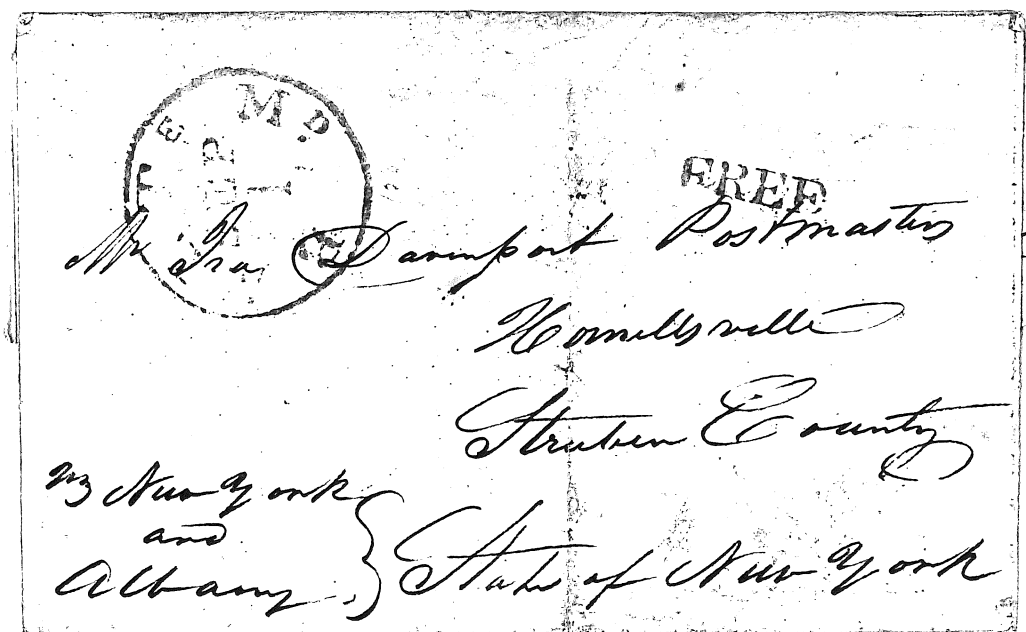 FREE
Mr Ira Davenport Postmaster
Hornellsville
Steuben County
New York
and
Albany
State of New York